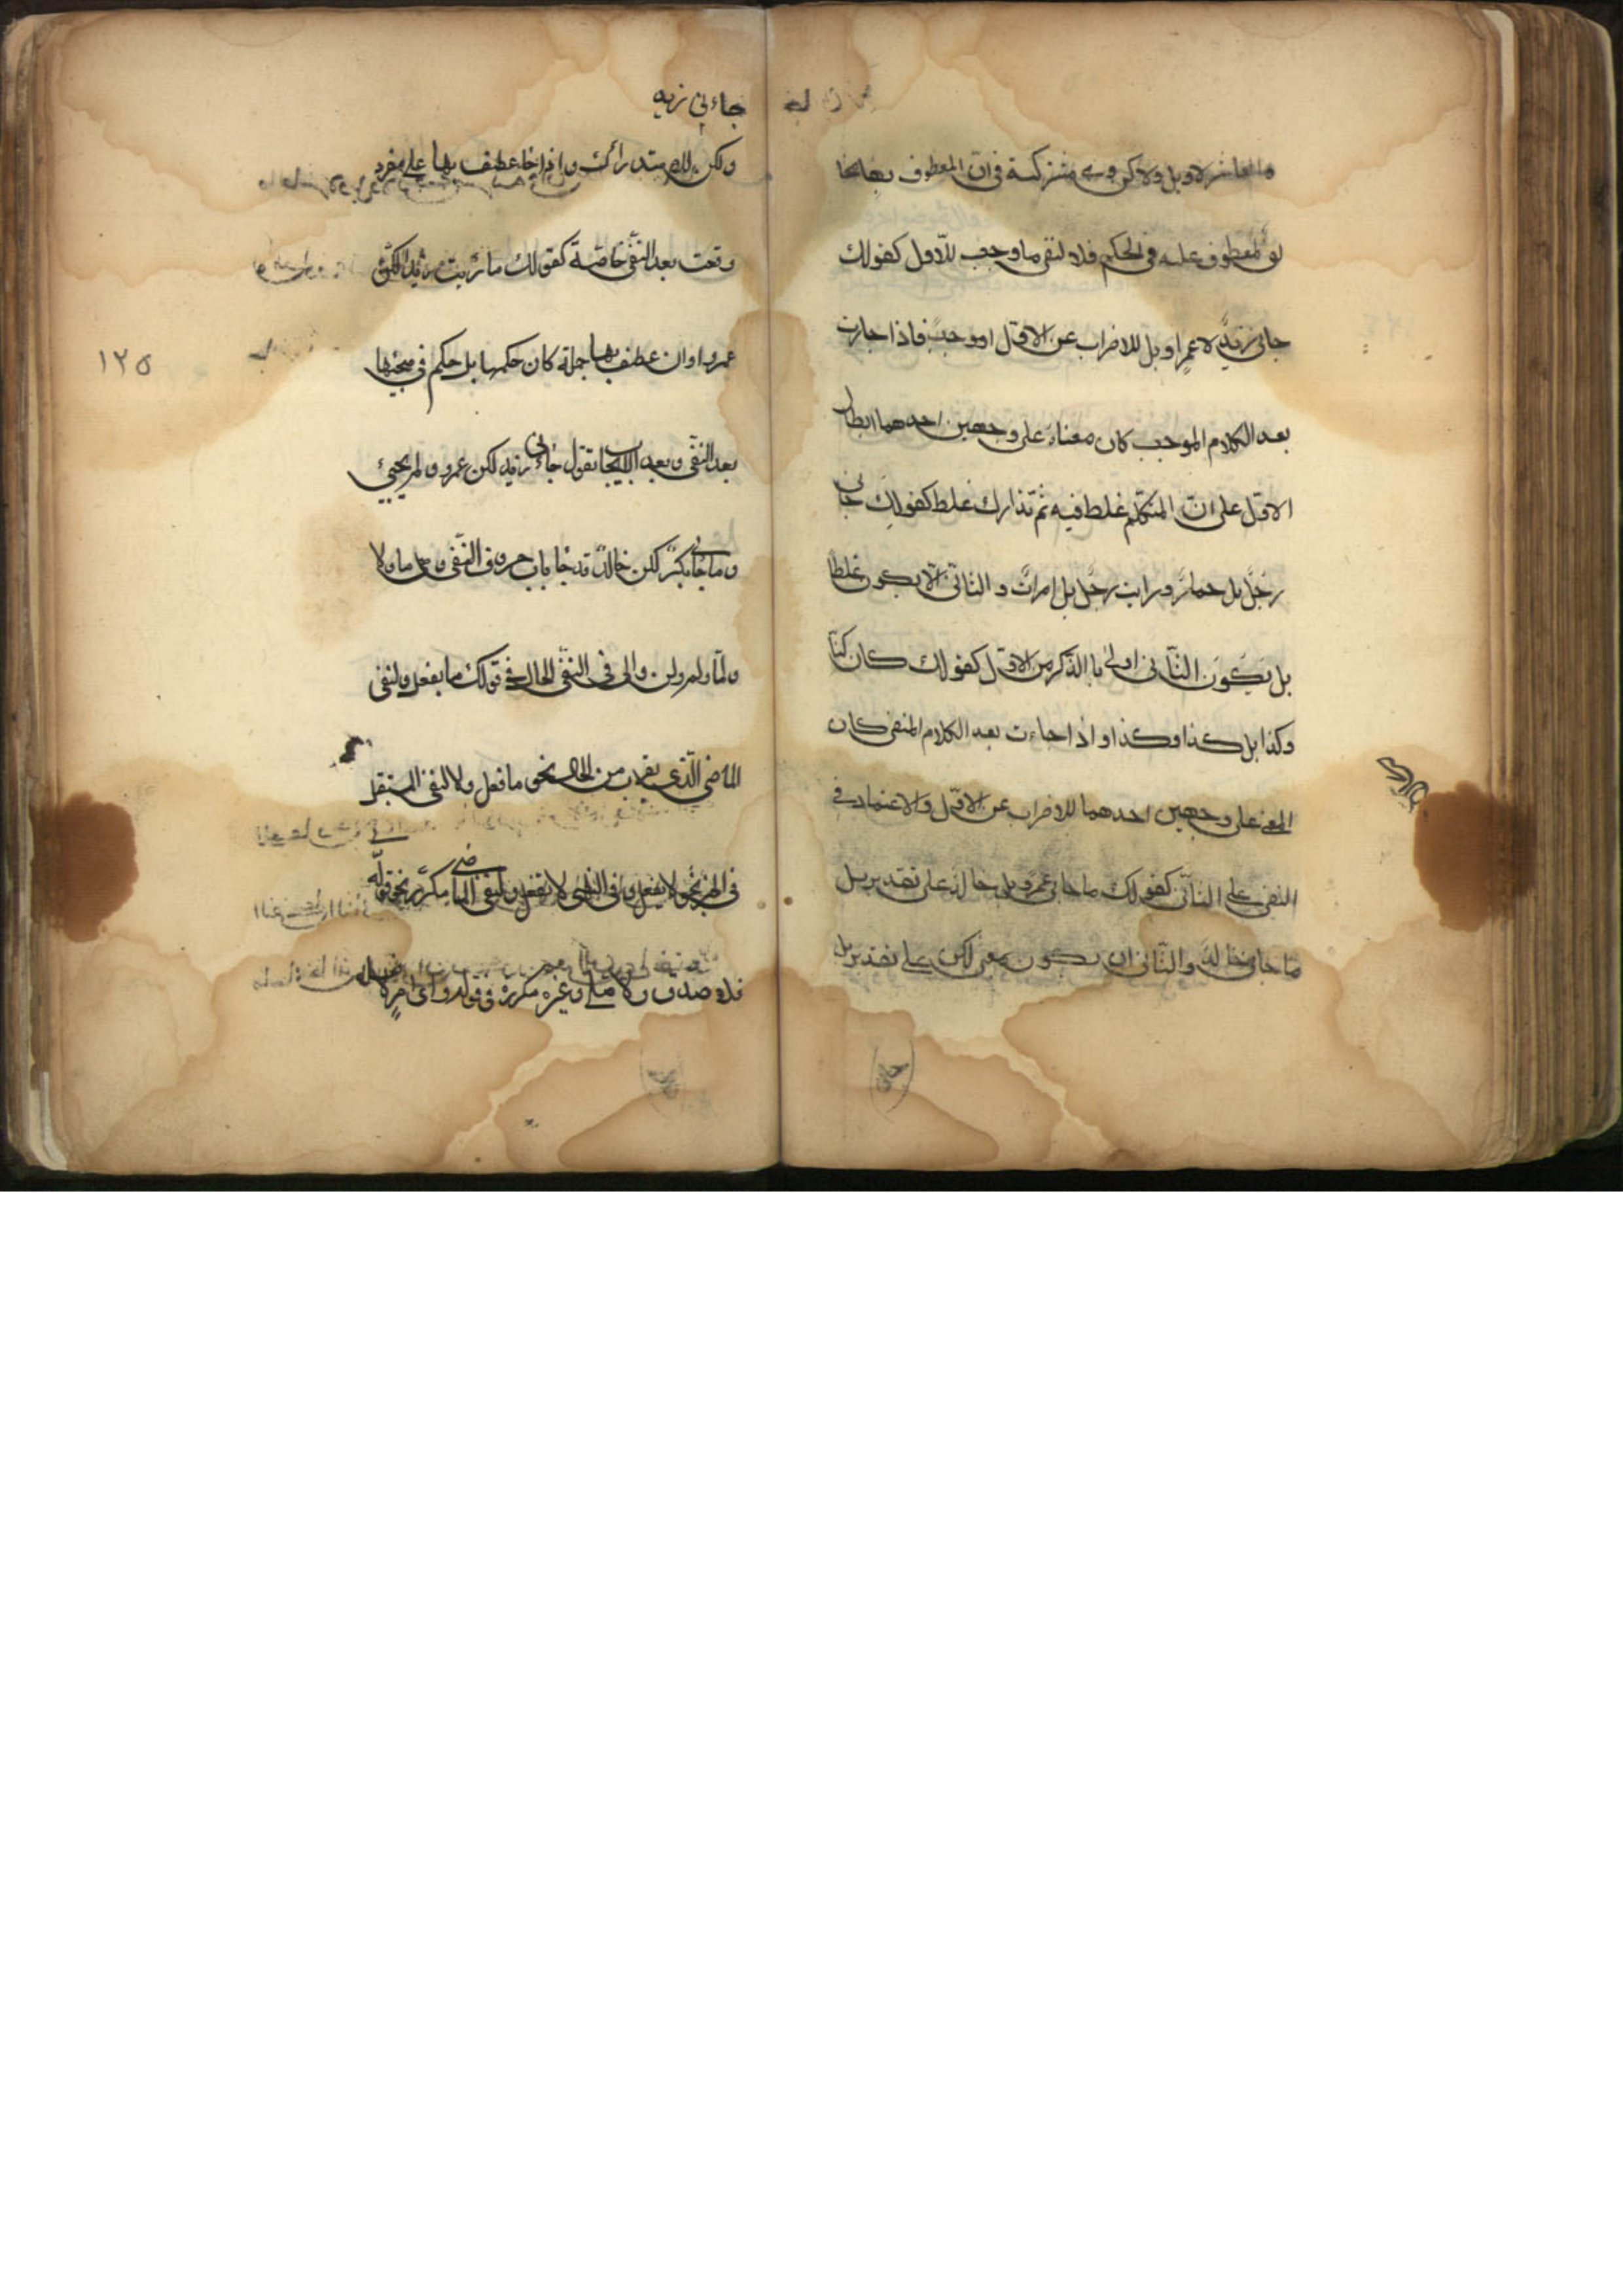 والعاشر لا وبل ولاكن وهي مشتركة في ان المعطوف بها مخا
لف لمعطوف عليه في الحكم فلا لنفى ما وجب للاول كقولك
جانى زيدٌ لا عمرٍ او بل للاضراب عن الاول او وجب فاذا جارت
بعد الكلام الموجب كان معناه على وجهين احدهما ابطال
الاول على ان المتكلم غلط فيه ثم تدارك غلط كقولك جانى
رجل بل حمار ورايت رجل بل امرات و الثانى الا يكون غلطا
بل يكون الثانى اولى با الذكر من الاول كقولك كان كذا
وكذا بل كذا وكذا و اذا جاءت بعد الكلام المنفى كان
المعنى على وجهين احدهما للاضراب عن الاول والاعتماد في
النفى على الثانى كقولك ما جانى عمرو بل خالد على تقدير بل
ما جانى خالد والثانى ان يكون بمعنى لكن على تقدير بل
جاءنى زيد
ولكن للاستدراك و اذا عطف بها على مفرد
وقعت بعد النفى خاصة كقولك ما رايت زيد لكن
عمروا وان عطف بها جملة كان حكمها بل حكم في مجيئها
بعد النفى وبعد اليجاب تقول جاءنى زيد لكن عمرو ولم يجيئ
وما جانى بكر لكن خالد قد جا باب حروف النفى وهى ما ولا
ولمّا ولم ولن وال فى النفى الحال في قولك ما يفعل ولنفى
الماضى الّذى يقرب من الحال نحو ما فعل ولا لنفى المستقبل
فى الخبر نحو لا يفعل وفى النهى لا يفعل ولنفى الماضى مكرّر نحو قوله
فلا صدق ولا صلى وغير مكرر في قوله واى امرٍ
١٢٥